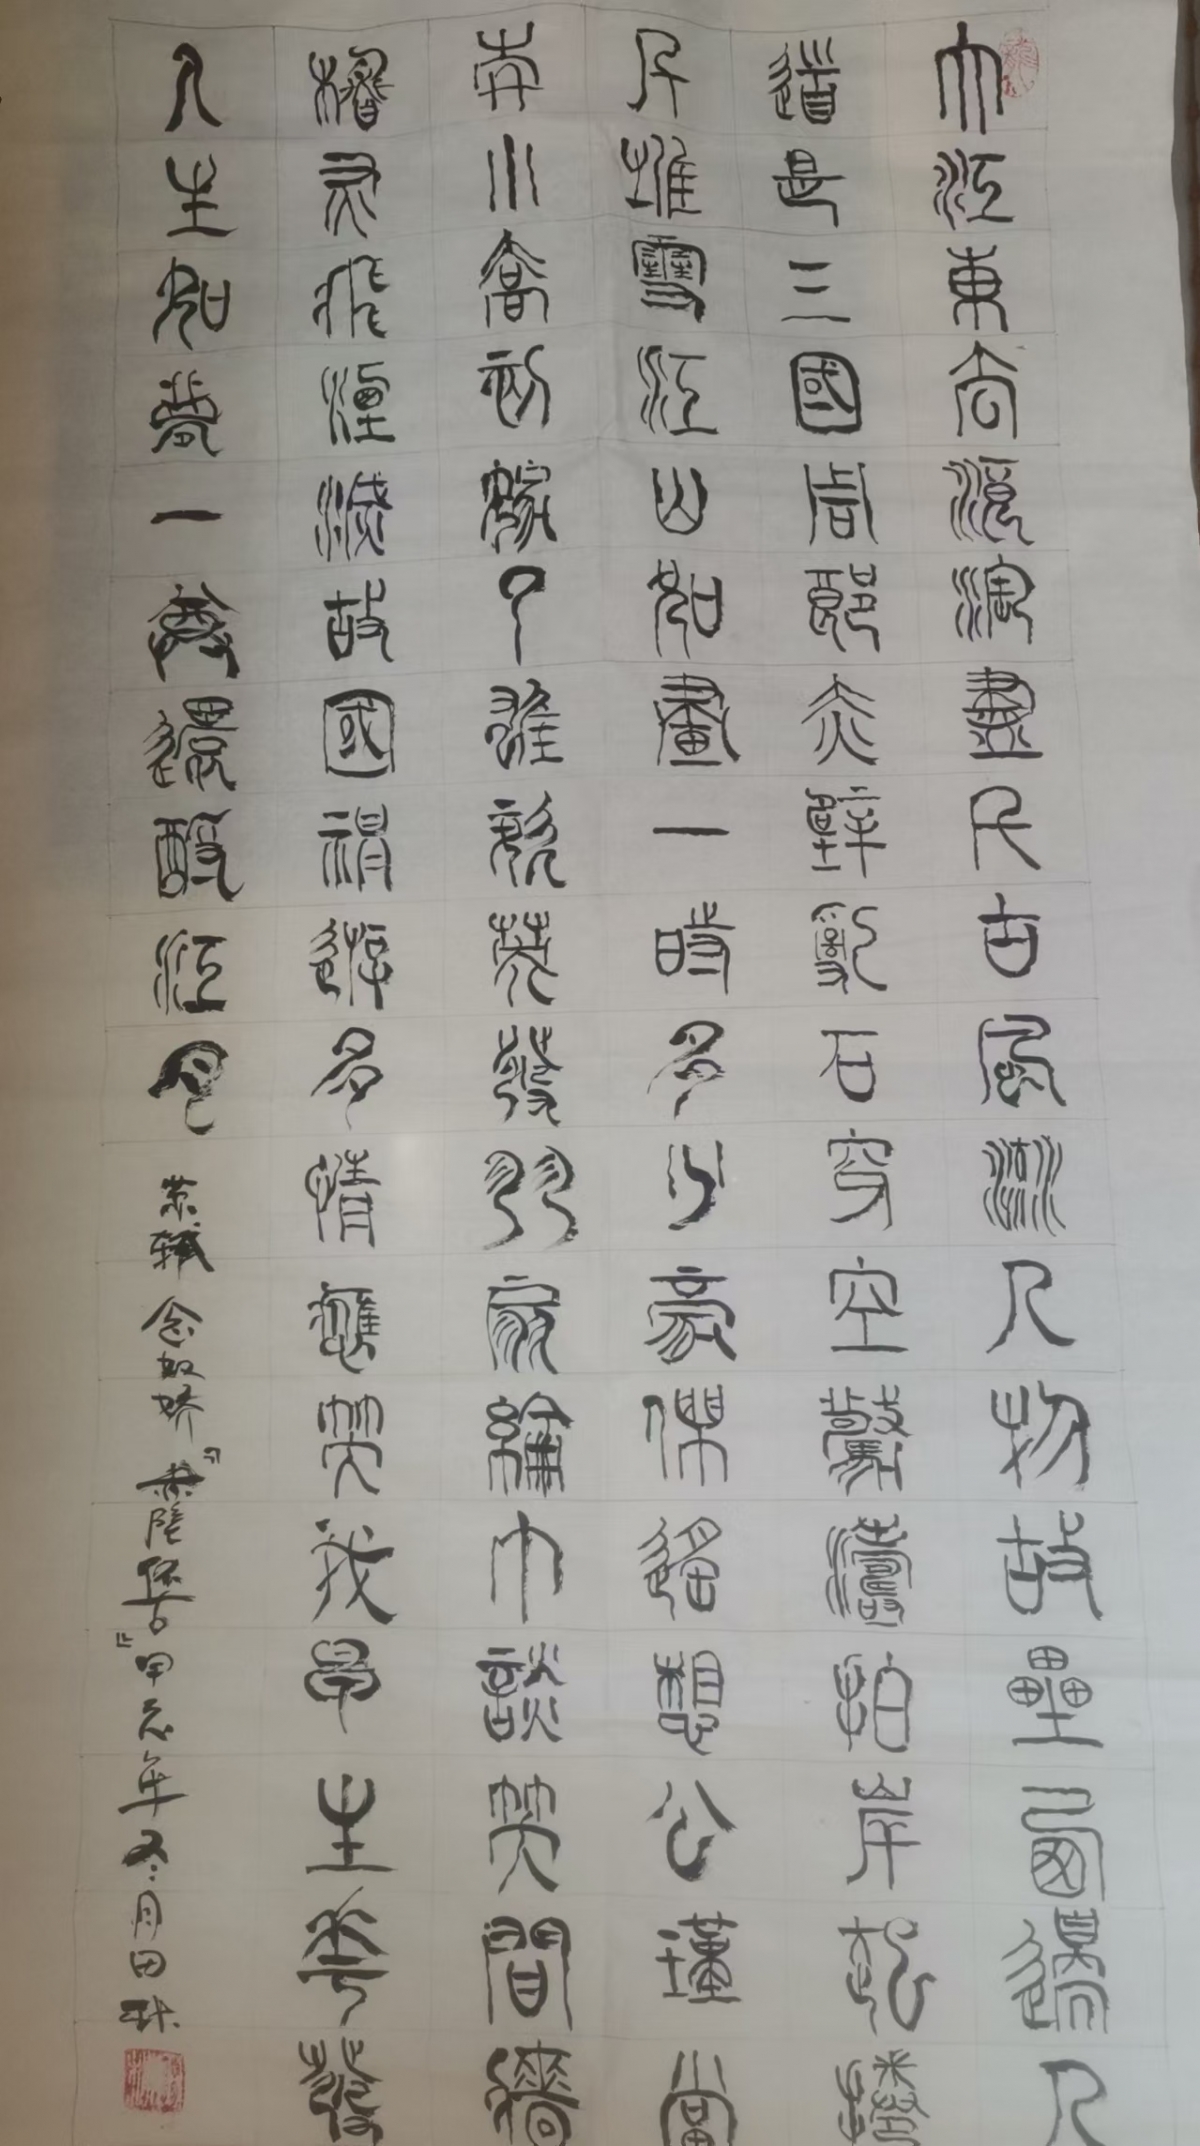 大江東去浪淘盡千古風流人物故壘西邊人
道是三國周郎赤壁亂石穿空驚濤拍岸起捲
千堆雪江山如畫一時多少豪傑遙想公瑾當
年小喬初嫁了雄姿英發羽扇綸巾談笑間檣
櫓灰飛煙滅故國神遊多情應笑我早生華發
人生如夢一尊還酹江月 苏轼 念奴娇『赤壁怀古』甲辰年冬月田